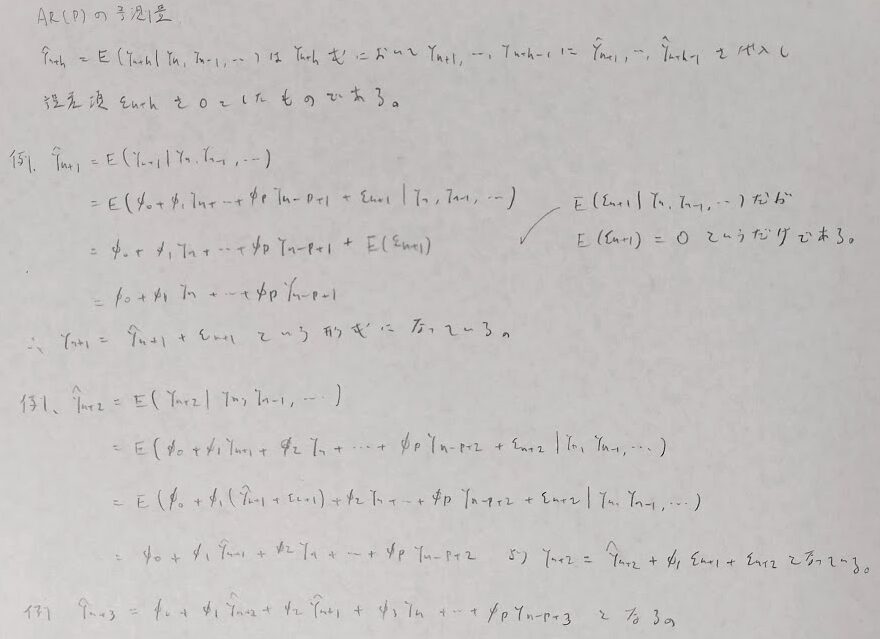 AR(P)の予測量
ŷn+h = E(Yn+h | Yn, Yn-1, …) は Yn+h 式において Yn+1, …, Yn+h-1 に Ŷn+1, …, Ŷn+h-1 を代入し
誤差項 εn+h を 0 としたものである。
例1. Ŷn+1 = E(Yn+1 | Yn, Yn-1, …)
= E(φ0 + φ1Yn + … + φpYn-p+1 + εn+1 | Yn, Yn-1, …)
E(εn+1 | Yn, Yn-1, …) だが
= φ0 + φ1Yn + … + φpYn-p+1 + E(εn+1)
E(εn+1) = 0 というだけである。
= φ0 + φ1Yn + … + φpYn-p+1
∴ Yn+1 = Ŷn+1 + εn+1 という形式になっている。
例1、Ŷn+2 = E(Yn+2 | Yn, Yn-1, …)
= E(φ0 + φ1Yn+1 + φ2Yn + … + φpYn-p+2 + εn+2 | Yn, Yn-1, …)
= E(φ0 + φ1(Ŷn+1 + εn+1) + φ2Yn + … + φpYn-p+2 + εn+2 | Yn, Yn-1, …)
= φ0 + φ1Ŷn+1 + φ2Yn + … + φpYn-p+2 より Yn+2 = Ŷn+2 + φ1εn+1 + εn+2 となっている。
例 Ŷn+3 = φ0 + φ1Ŷn+2 + φ2Ŷn+1 + φ3Yn + … + φpYn-p+3 となる。